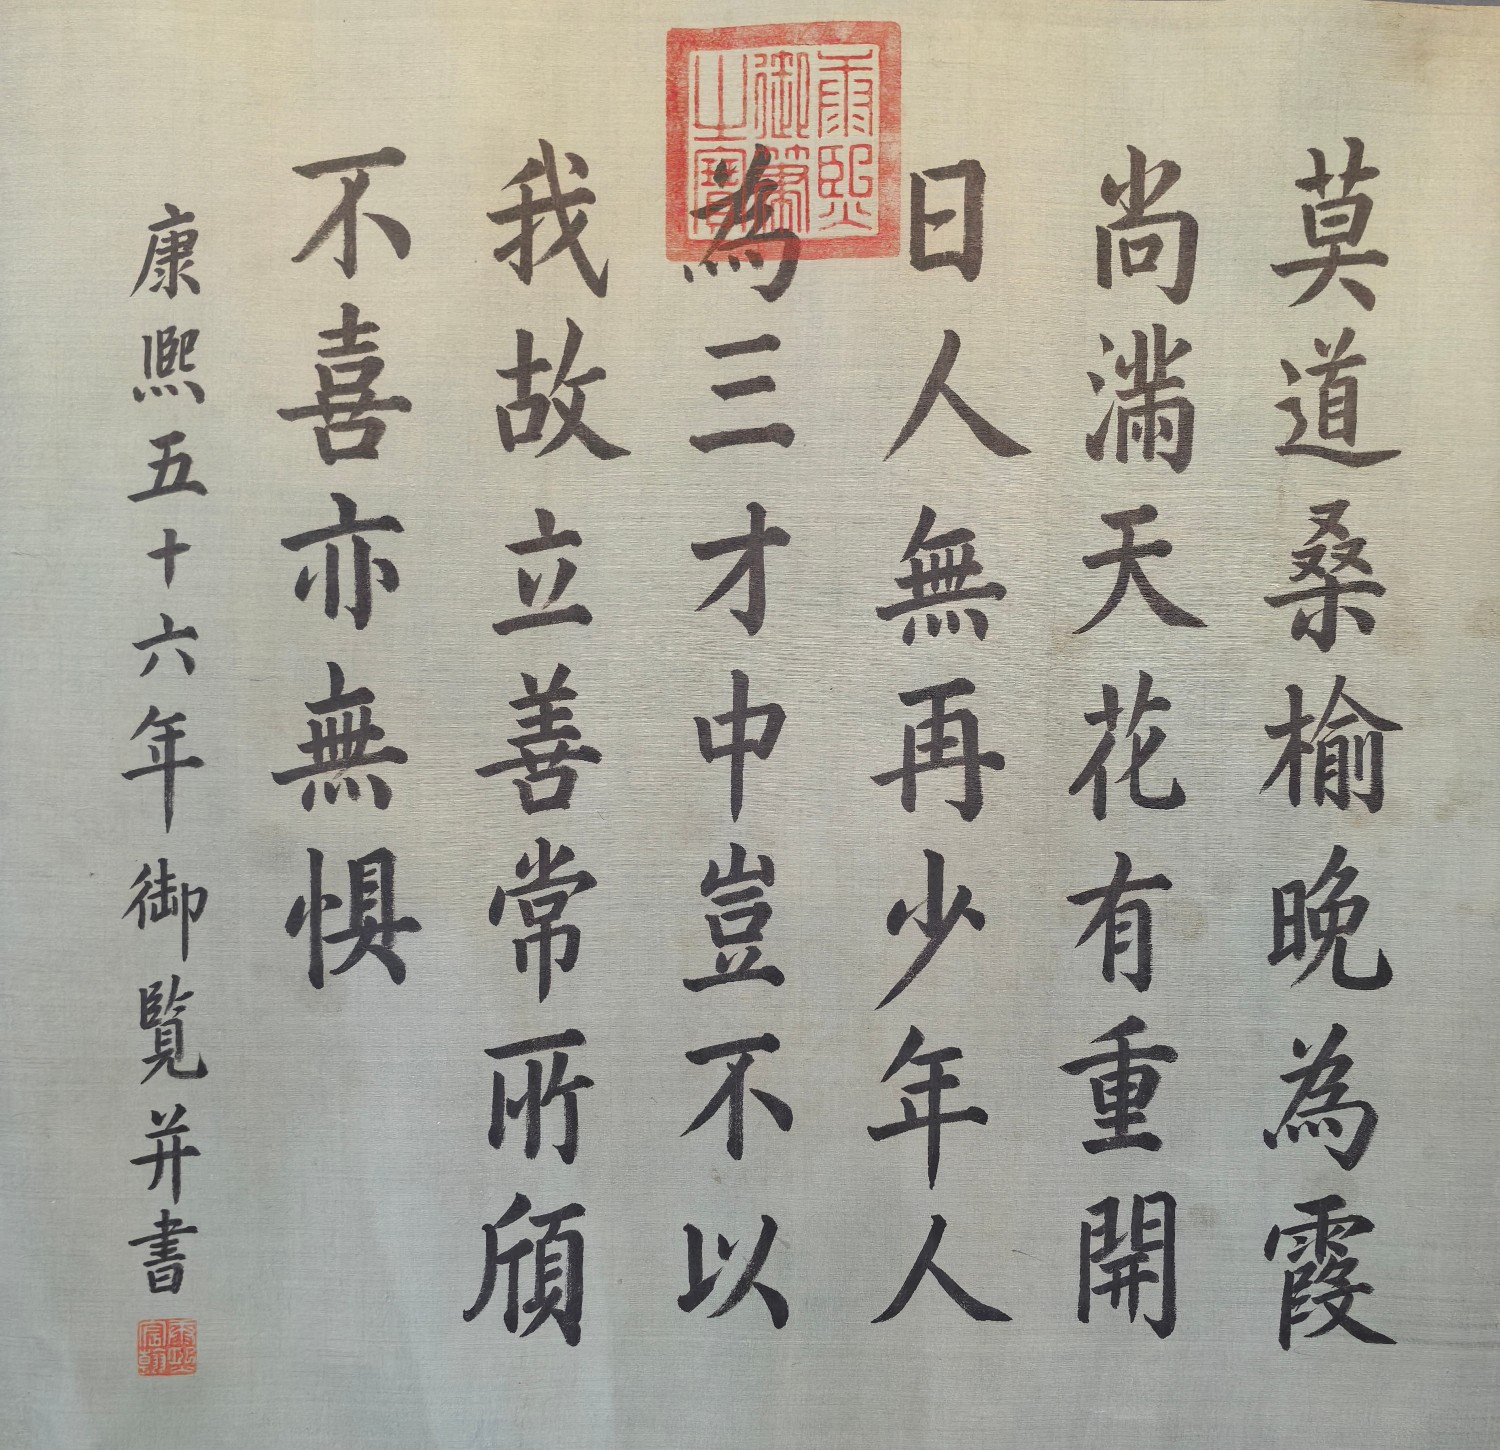 莫道桑榆晚為霞
尚滿天花有重開
日人無再少年人
為三才中豈不以
我故立善常所頎
不喜亦無懼
康熙五十六年御覽并書
康熙御筆之寶
康熙宸翰